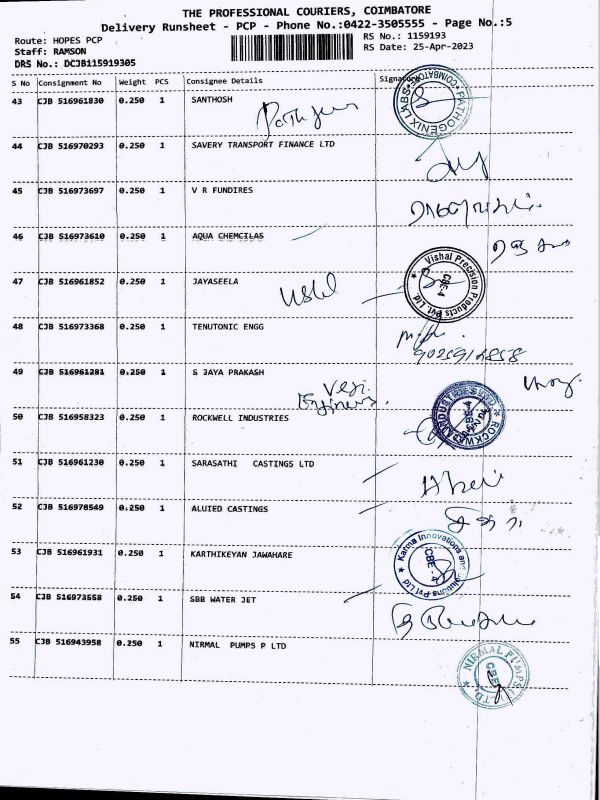 THE PROFESSIONAL COURIERS, COIMBATORE
Delivery Runsheet - PCP - Phone No.:0422-3505555 - Page No.:5
Route: HOPES PCP
Staff: RAMSON
DRS No.: DCJB115919305
RS No.: 1159193
RS Date: 25-Apr-2023
S No Consignment No Weight PCS Consignee Details Signature
43 CJB 516961830 0.250 1 SANTHOSH
PATHOGENIX LABS COIMBATORE
44 CJB 516970293 0.250 1 SAVERY TRANSPORT FINANCE LTD
45 CJB 516973697 0.250 1 V R FUNDIRES
46 CJB 516973610 0.250 1 AQUA CHEMCILAS
47 CJB 516961852 0.250 1 JAYASEELA
Vishal Precision Products Pvt. Ltd. CBE-4
48 CJB 516973368 0.250 1 TENUTONIC ENGG
49 CJB 516961281 0.250 1 S JAYA PRAKASH
50 CJB 516958323 0.250 1 ROCKWELL INDUSTRIES
51 CJB 516961230 0.250 1 SARASATHI CASTINGS LTD
52 CJB 516978549 0.250 1 ALUIED CASTINGS
53 CJB 516961931 0.250 1 KARTHIKEYAN JAWAHARE
Karma Innovations and Solutions Pvt Ltd CBE-4
54 CJB 516973558 0.250 1 SBB WATER JET
55 CJB 516943958 0.250 1 NIRMAL PUMPS P LTD
NIRMAL PUMPS LTD CBE